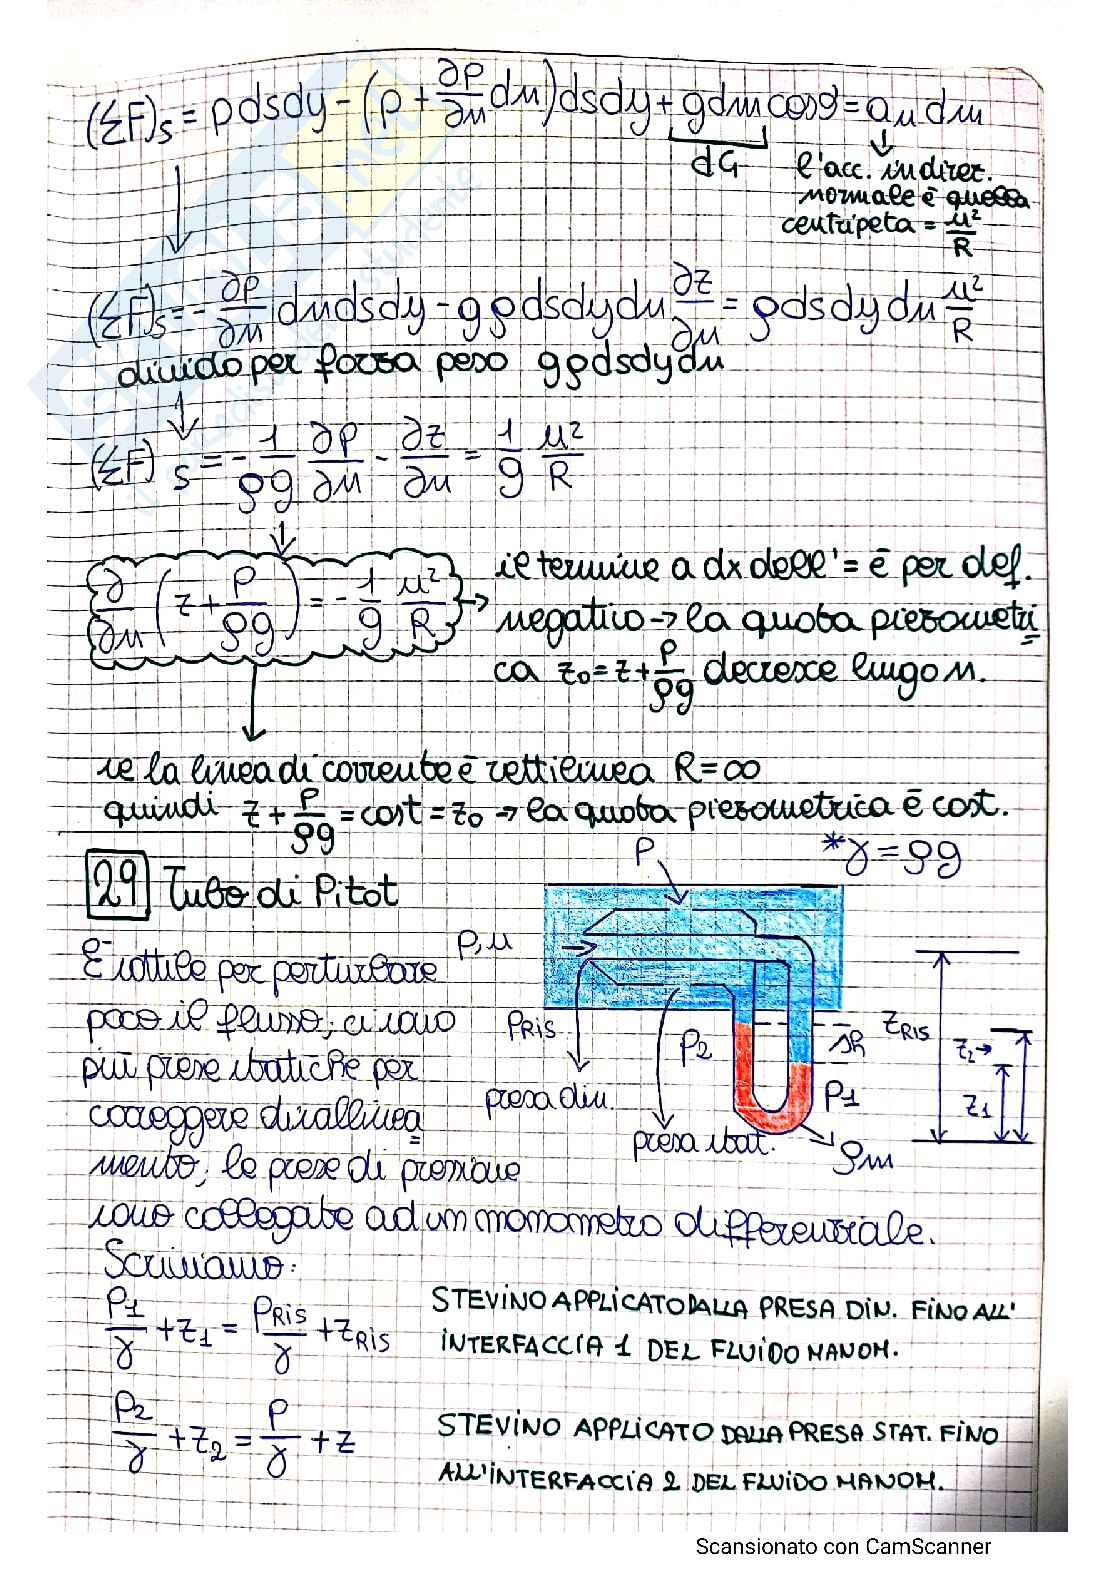 (ΣF)s = pdsdy - (p + ∂p/∂n dn) dsdy + g dm cosϑ = an dm
dG
l'acc. in direz.
normale è quella
centripeta = u²/R
(ΣF)s = - ∂p/∂n dndsdy - gρdsdydn ∂z/∂n = ρdsdydn u²/R
divido per forza peso gρdsdydn
(ΣF)s = - 1/ρg ∂p/∂n - ∂z/∂n = 1/g u²/R
∂/∂n (z + p/ρg) = - 1/g u²/R → il termine a dx dell'= è per def.
negativo → la quota piezometri
ca z₀ = z + p/ρg decresce lungo n.
se la linea di corrente è rettilinea R = ∞
quindi z + p/ρg = cost = z₀ → la quota piezometrica è cost.
*γ = ρg
29 Tubo di Pitot
È sottile per perturbare
poco il flusso, ci sono
più prese statiche per
correggere disallinea
mento, le prese di pressione
sono collegate ad un manometro differenziale.
P
P, u
PRIS
presa din.
P2
presa stat.
Δh
P1
ρm
zRIS
z2 →
z1
Scriviamo:
P1/γ + z1 = PRIS/γ + zRIS
STEVINO APPLICATO DALLA PRESA DIN. FINO ALL'
INTERFACCIA 1 DEL FLUIDO MANOM.
P2/γ + z2 = P/γ + z
STEVINO APPLICATO DALLA PRESA STAT. FINO
ALL'INTERFACCIA 2 DEL FLUIDO MANOM.
Scansionato con CamScanner